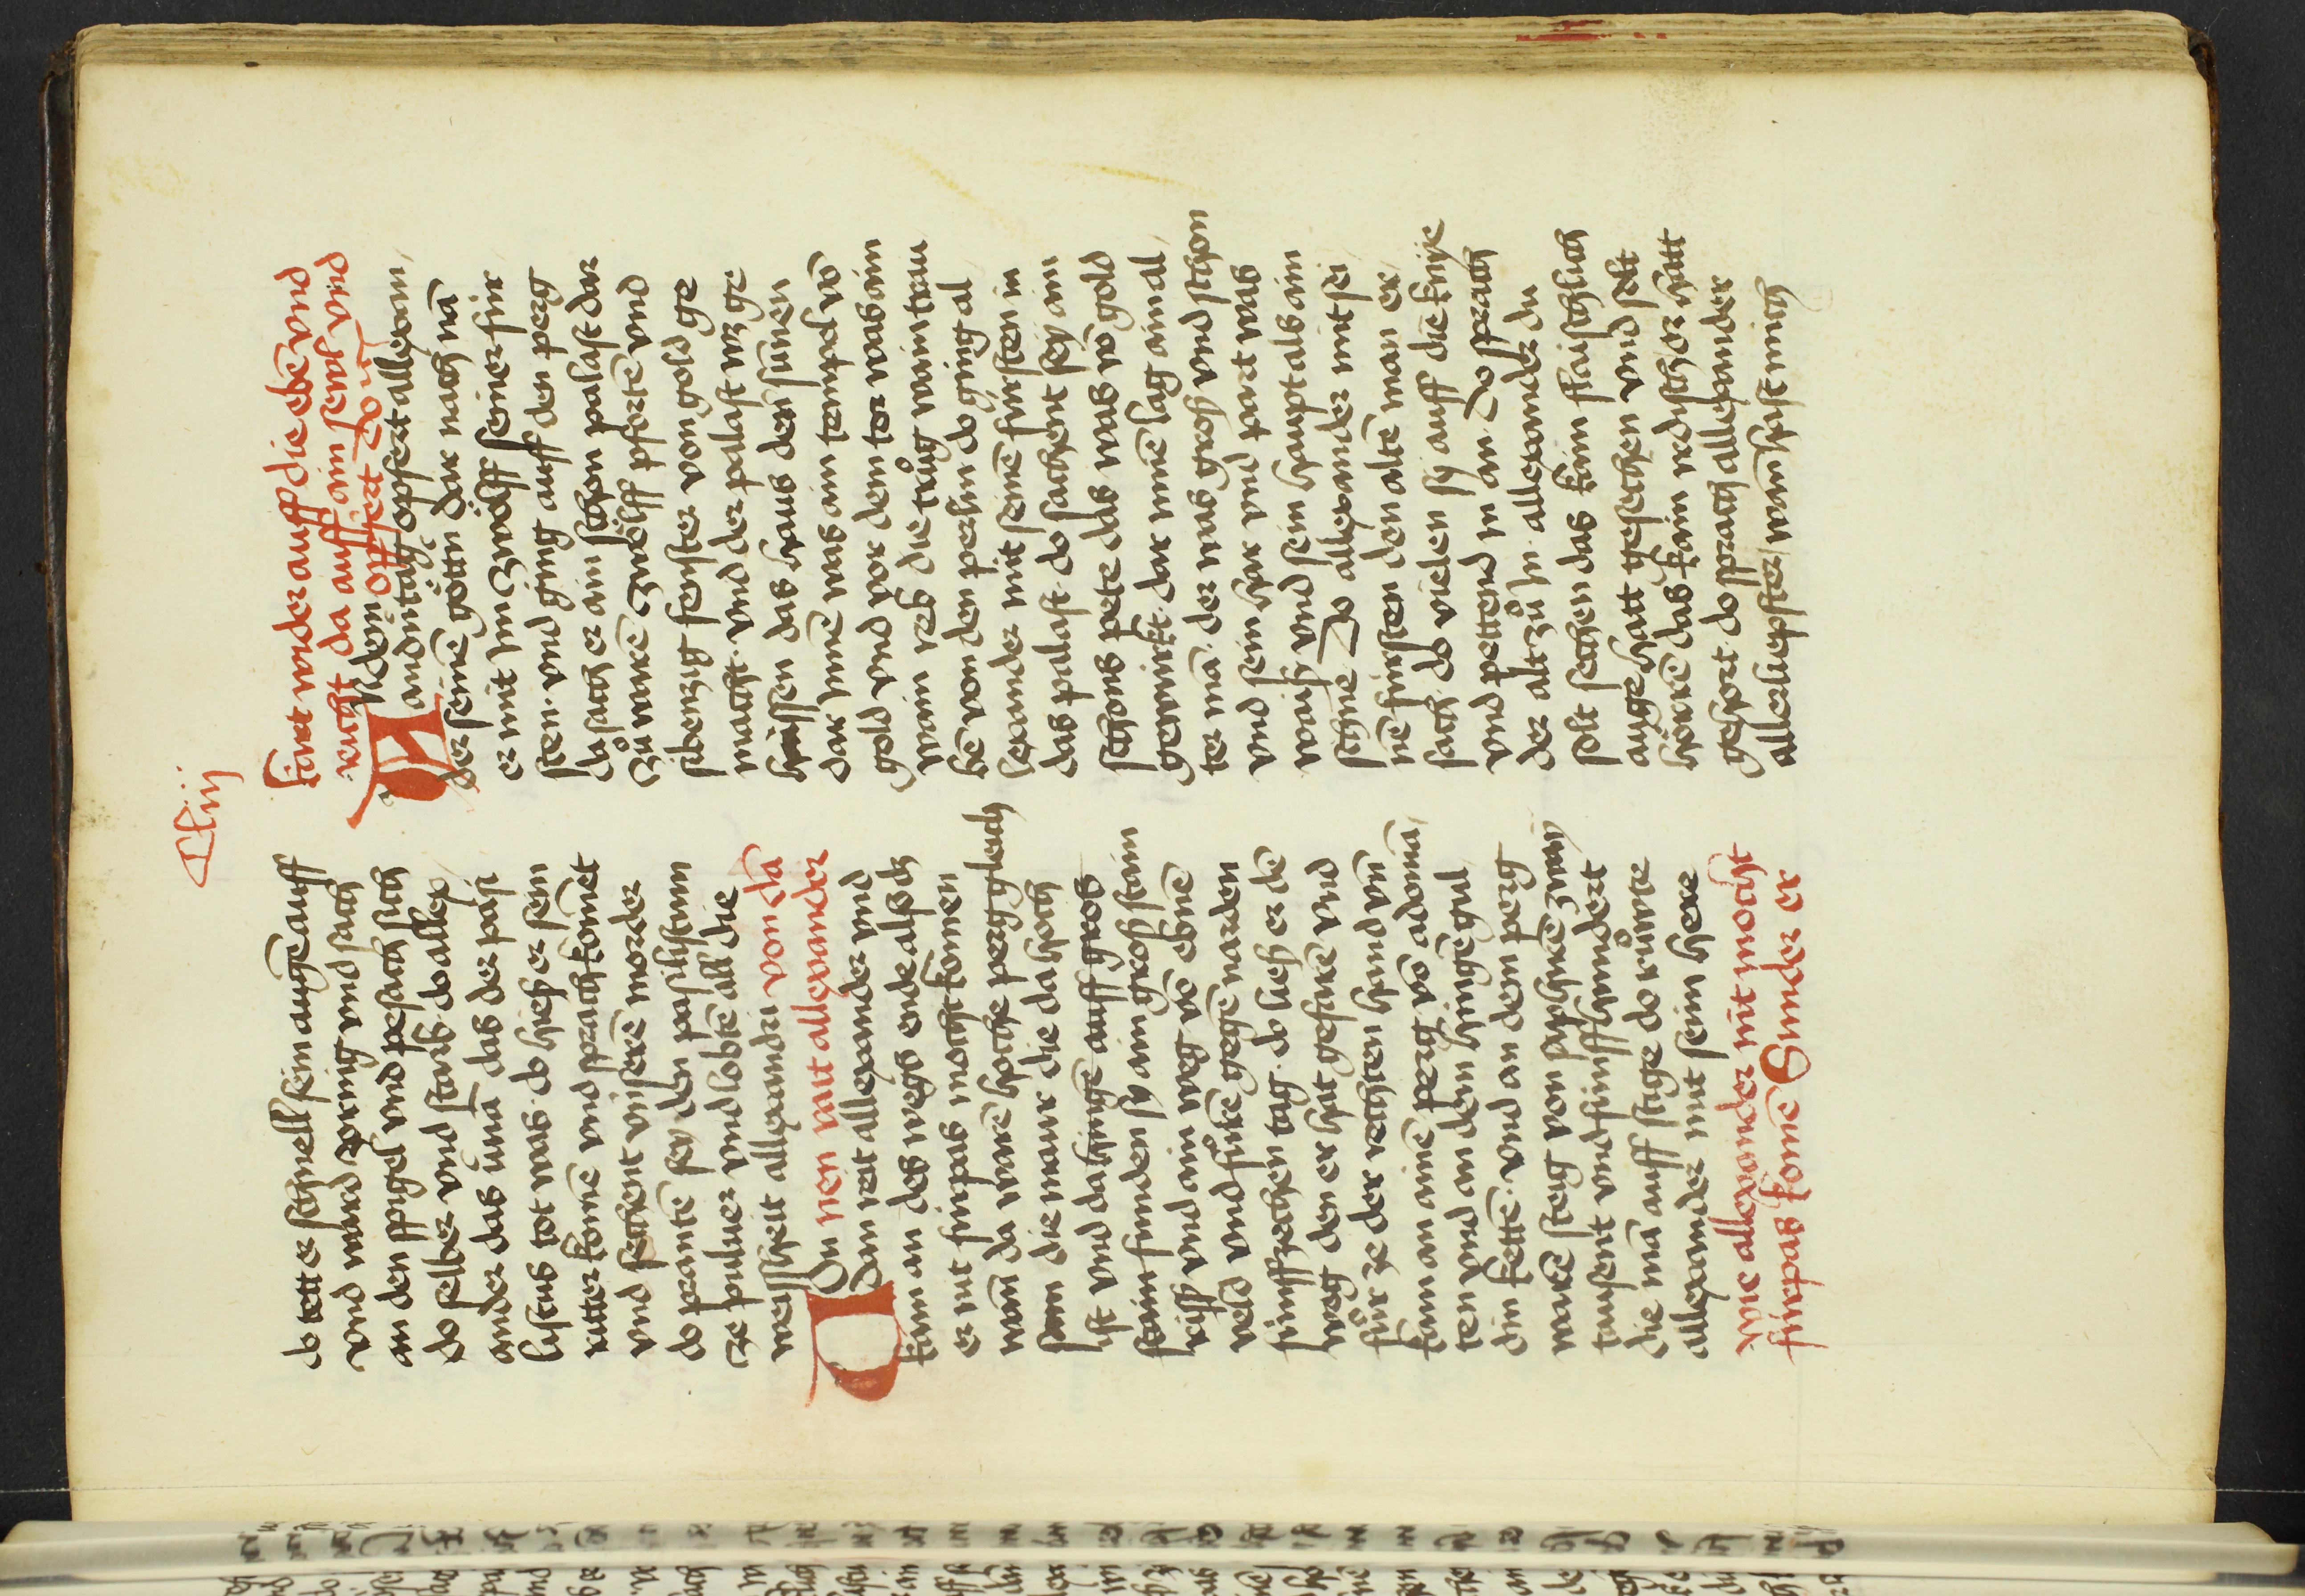 Cliij
do tett er schnell sein augē auff
vnd ward zornig vnd sach
an den spigel vnd pesach sich
do selber vnd starb do allex
ander das ūnā das der pasi
listus tot was do hieß er sein
ritter komē vnd sprach komēt
vnd sechent vnserē morder
do prantē sy den pasilistum
ze puluer vnd lobtē all die
weissheit allexandri von dā
On nen rait allexander
Dan rait allexander vnd
kam an des wegs ende alß dz
er nit fürpas mocht komen
wañ da warē hoche perg gleich
sam die maur die da hoch
ist vnd da hingē auff gros
stain funden sy ain groß stain
riss vnd ain weg vō ebnē
veld vnd fürē gegē narden
fünffzechen tag. do ließ er dē
weg den er hat gefarē vnd
für ze der rechten hand vñ
kam an ainē perg vō adomā
ten vnd an dem hingē gul
din kettē. vnd an dem perg
warē steig von saphirē zway
tausent vnd fünffhundert
die mā auff stige do růwte
allexander mit seim here
wie allexander nit mocht
fürpas komē Sunder er
karet wider auff die ebē vnd
raicht da auff ain sewl vnd
opffert do n
N dem
andn tag opfert allexan
der seinē göttn dar nach nā
er mit im zwölff seiner für
sten. vnd ging auff den perg
da sach er ain schon palast dar
zů warē zwölff pfortē vnd
sibenzig fenster von gold ge
macht. vnd der palast wz ge
haissen das haus der sunnen
dar innē was ain tempel vō
gold vnd vor dem tor was ain
wain reb die trůg wain trau
bē von den perlin do ging al
lexander mit seinē fürsten in
das palast. do sachent sy ain
schons pete das was vō gold
gewirkt. dar innē lag ain al
ter mā. der was groß vnd schon
vnd sein har vnd part was
waiß vnd sein haupt als ain
schne Do allexander mit sei
nē fürsten den altē man er
sach. do vielen sy auff die knije
vnd pettend in an. Do sprach
der alt zů im. allexander du
solt sechen das kain flaischlich
auge hatt gesechen vnd solt
hörrē das kain irdisch or hatt
gehort. do sprach allexander
allerliepster wañ hast mich